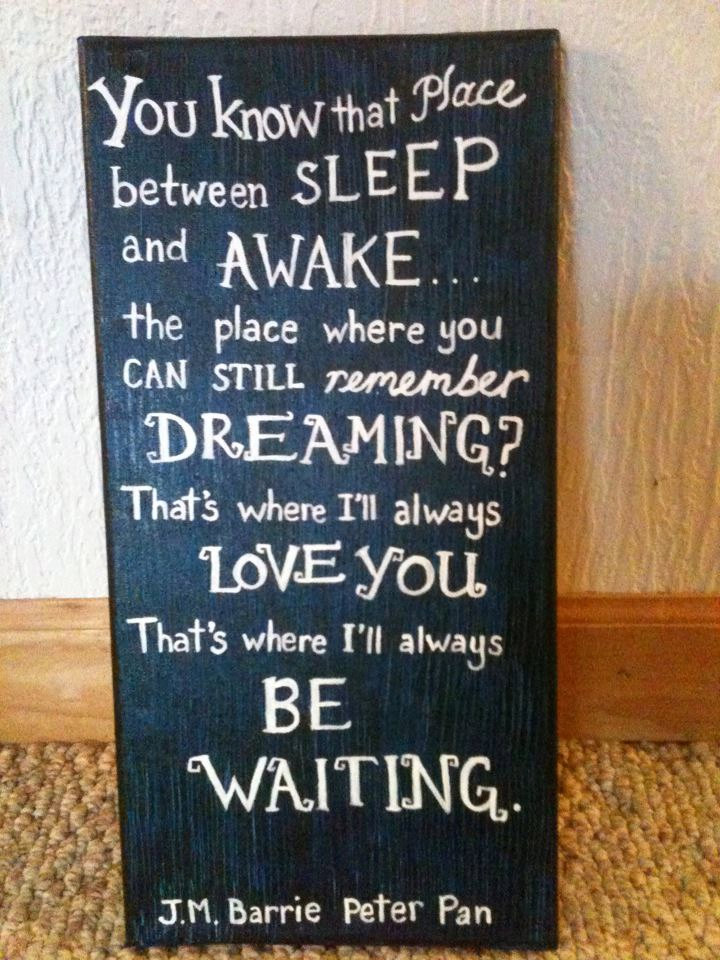 You know that Place
between SLEEP
and AWAKE...
the place where you
CAN STILL remember
DREAMING?
That's where I'll always
LOVE YOU
That's where I'll always
BE
WAITING.
J.M. Barrie Peter Pan